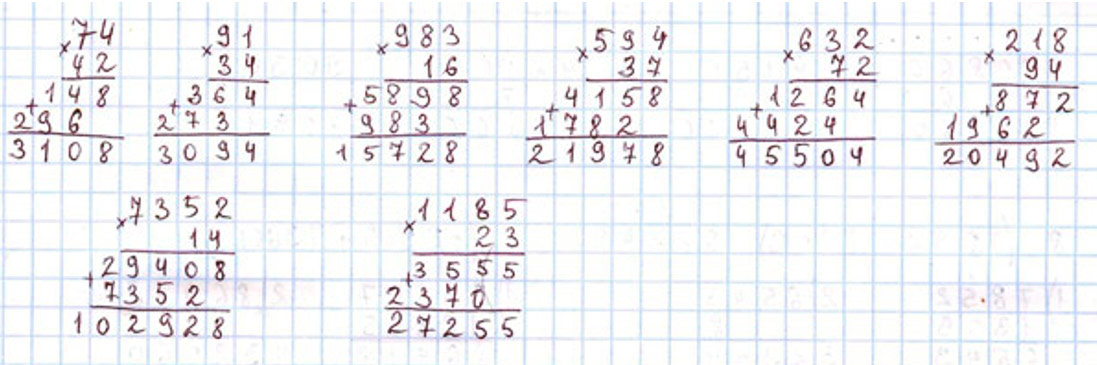 ×74
42
148
+
296
3108
×91
34
364
+
273
3094
×983
16
5898
+
983
15728
×594
37
4158
+
1782
21978
×632
72
1264
+
4424
45504
×218
94
872
+
1962
20492
×7352
14
29408
+
7352
102928
×1185
23
3555
+
2370
27255